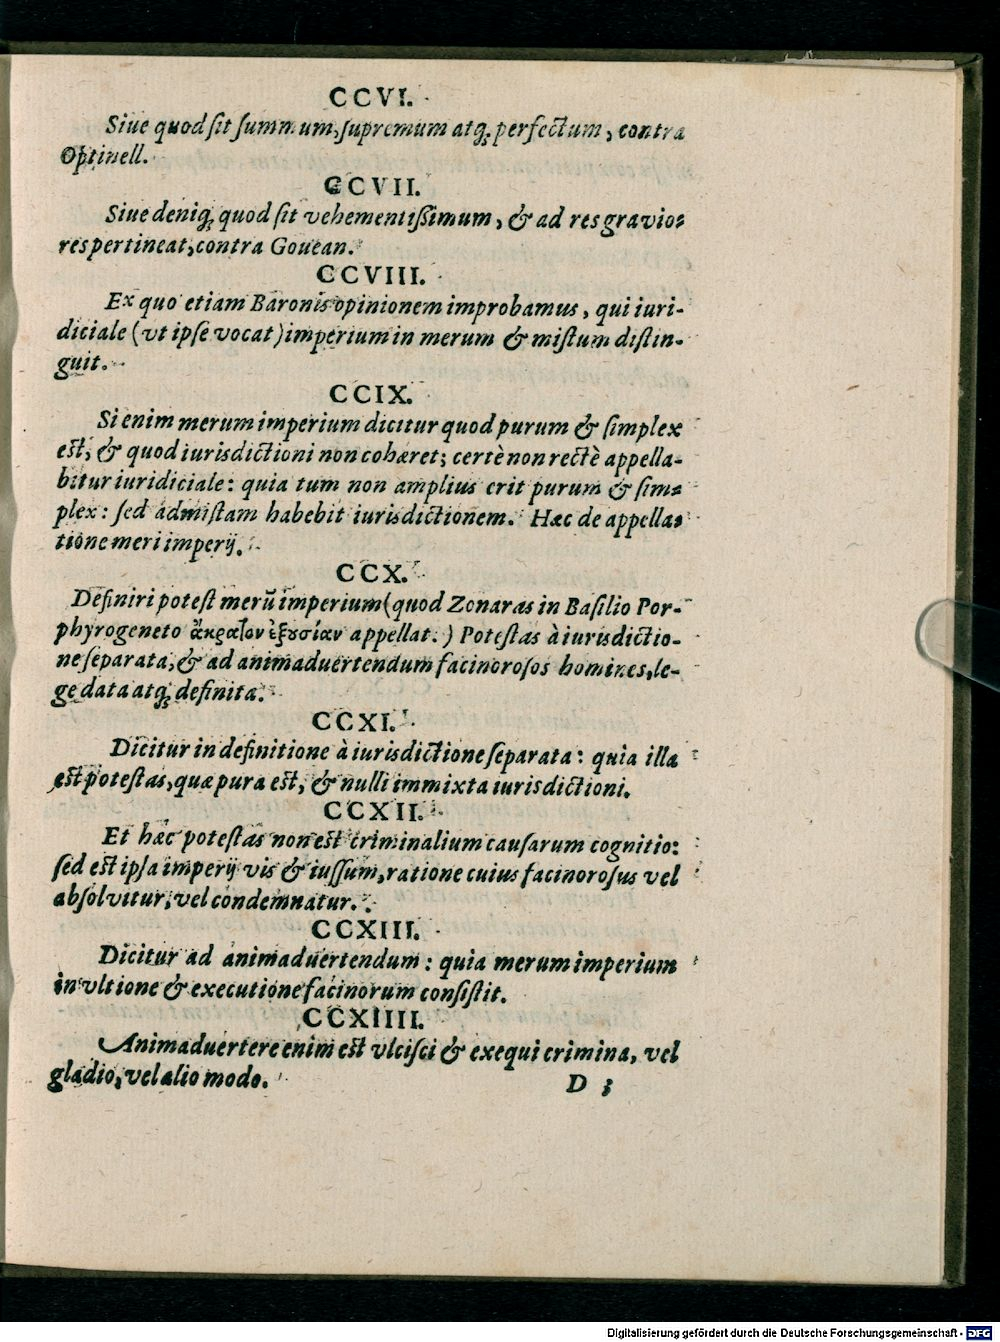 CCVI.
Siue quod sit summum, supremum atq; perfectum, contra
Optinell.
CCVII.
Siue deniq; quod sit vehementissimum, & ad res grauio-
res pertineat, contra Gouean.
CCVIII.
Ex quo etiam Baronis opinionem improbamus, qui iuri-
diciale (vt ipse vocat) imperium in merum & mistum distin-
guit.
CCIX.
Si enim merum imperium dicitur quod purum & simplex
est, & quod iurisdictioni non cohæret; certè non rectè appella-
bitur iuridiciale: quia tum non amplius erit purum & sim-
plex: sed admistam habebit iurisdictionem. Hæc de appella-
tione meri imperij.
CCX.
Definiri potest merū imperium (quod Zonaras in Basilio Por-
phyrogeneto ἄκρατον ἐξουσίαν appellat.) Potestas à iurisdictio-
ne separata, & ad animaduertendum facinorosos homines, le-
ge data atq; definita.
CCXI.
Dicitur in definitione à iurisdictione separata: quia illa
est potestas, quæ pura est, & nulli immixta iurisdictioni.
CCXII.
Et hæc potestas non est criminalium causarum cognitio:
sed est ipsa imperij vis & iussum, ratione cuius facinorosus vel
absolvitur, vel condemnatur.
CCXIII.
Dicitur ad animaduertendum: quia merum imperium
in vltione & executione facinorum consistit.
CCXIIII.
Animaduertere enim est vlcisci & exequi crimina, vel
gladio, vel alio modo.
D 3
Digitalisierung gefördert durch die Deutsche Forschungsgemeinschaft - DFG